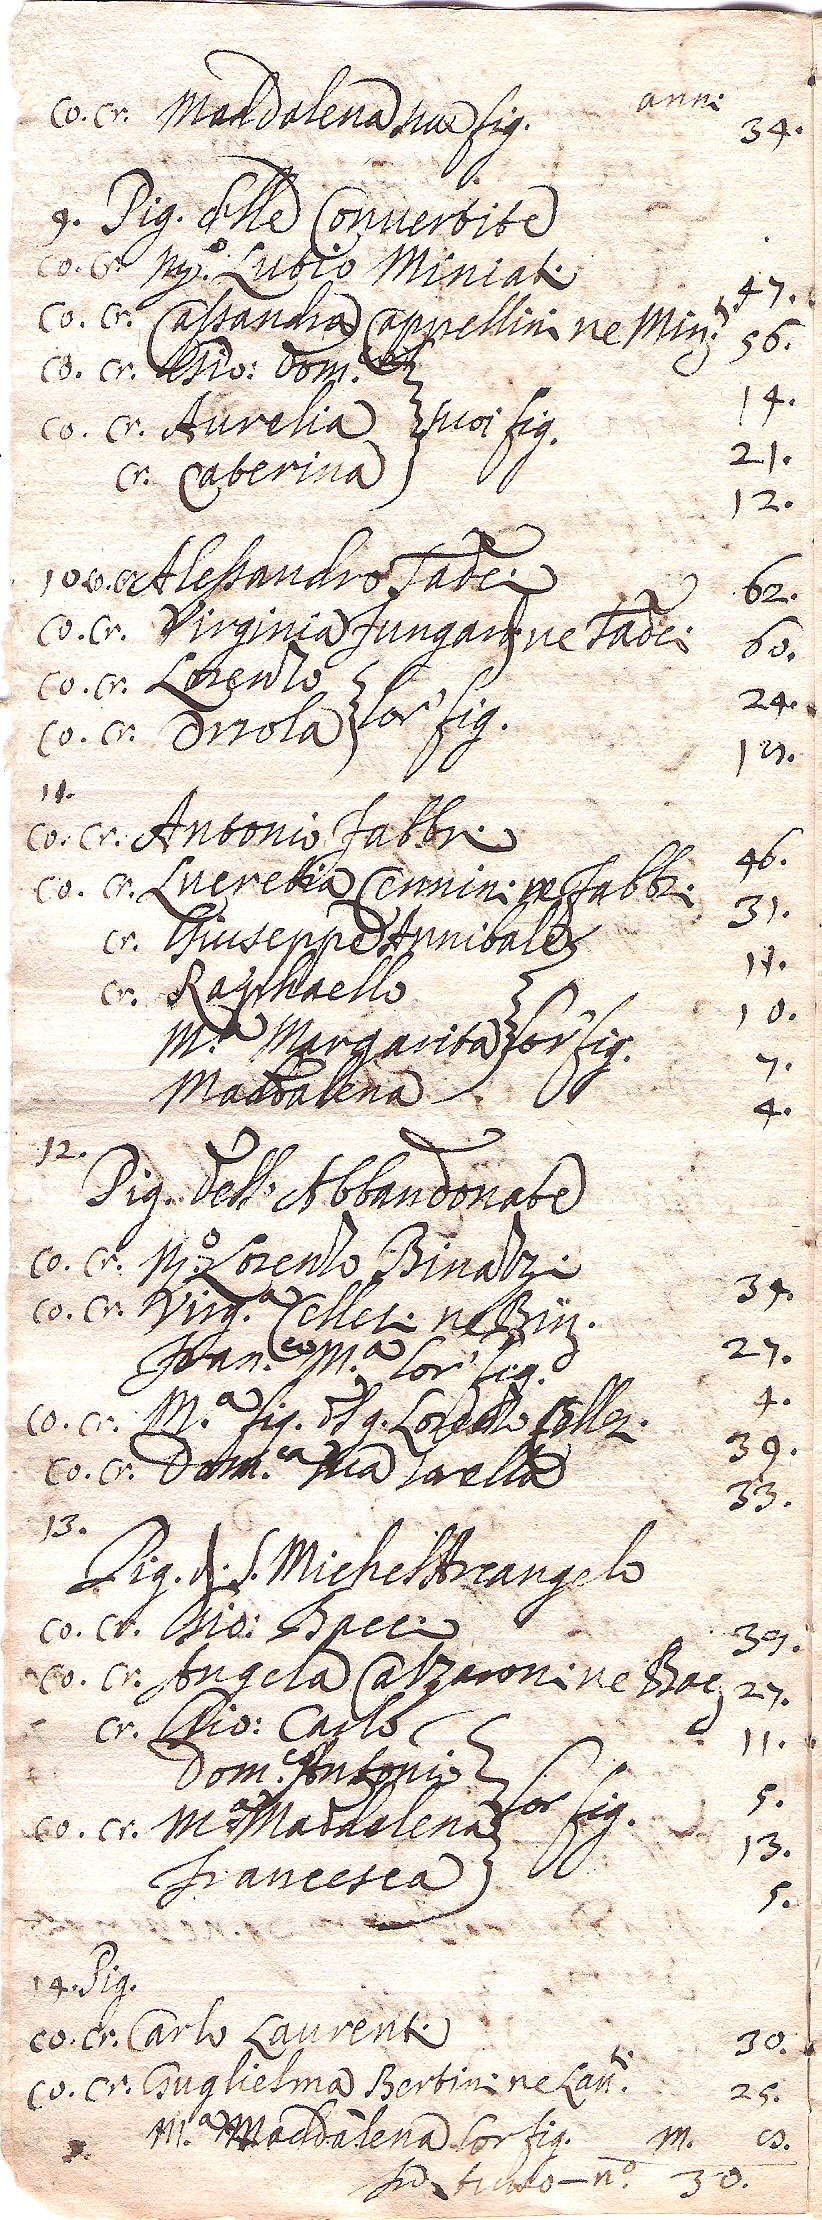 anni
co. cr. Maddalena sua fig. 34.
9. Pig. delle Convertite
co. cr. Mo. Lutio Miniati 47.
co. cr. Cassandra Cappellini ne Min.ti 56.
co. cr. Gio: Dom.co 14.
co. cr. Aurelia suoi fig. 21.
cr. Caterina 12.
10 co. cr. Alessandro Tadei 62.
co. cr. Virginia Fungari ne Tadei 60.
co. cr. Lorenzo 24.
co. cr. Orsola lor' fig. 19.
11.
co. cr. Antonio Fabbri 46.
co. cr. Lucretia Cennini ne Fabbri 31.
cr. Giuseppe Annibale 11.
cr. Raphaello 10.
M.a Margarita lor' fig. 7.
Maddalena 4.
12.
Pig. dell' Abbandonate
co. cr. Mo. Lorenzo Binazzi 34.
co. cr. Virg.a Cellesi ne Bin. 27.
Fran.co M.a lor' fig. 4.
co. cr. M.a fig. del q. Lorenzo 39.
co. cr. Dom.ca sua sorella 33.
13.
Pig. di S. Michel Arcangelo
co. cr. Gio: Bacci 39.
co. cr. Angela Calzaroni ne Bac 27.
cr. Gio: Carlo 11.
Dom.co Antonio 5.
co. cr. M.a Maddalena lor fig. 13.
Francesca 5.
14. Pig.
co. cr. Carlo Laurenti 30.
co. cr. Guglielma Bertini ne Lau.ti 25.
M.a Maddalena lor fig. m.
In tutto — n.o 30.